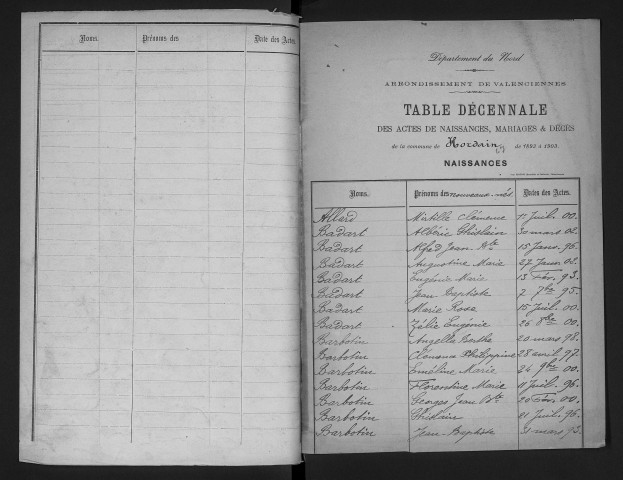 Noms. Prénoms des Date des Actes.
Département du Nord
ARRONDISSEMENT DE VALENCIENNES
TABLE DÉCENNALE
DES ACTES DE NAISSANCES, MARIAGES & DÉCÈS
de la commune de Hordain de 1893 à 1903.
NAISSANCES
Noms. Prénoms des nouveaux-nés. Dates des Actes.
Allard Mirtille Clémence 1r Juil. 00.
Badart Albéric Ghislain 30 mars 02.
Badart Jean Bte 15 Janv. 96.
Badart Augustine Marie 27 Janv. 02.
Badart Eugénie Marie 13 Fév. 93.
Badart Jean Baptiste 2 7bre 95.
Badart Marie Rose 15 Juil. 00.
Badart Zélie Eugénie 26 8bre 00.
Barbotin Angella Berthe 20 mars 98.
Barbotin Philippine 28 avril 97.
Barbotin Emeline Marie 24 9bre 00.
Barbotin Florentine Marie 11 Juil. 96.
Barbotin Georges Jean Bte 20 Fév. 00.
Barbotin Ghislain 21 Juil. 96.
Barbotin Jean-Baptiste 31 mars 93.